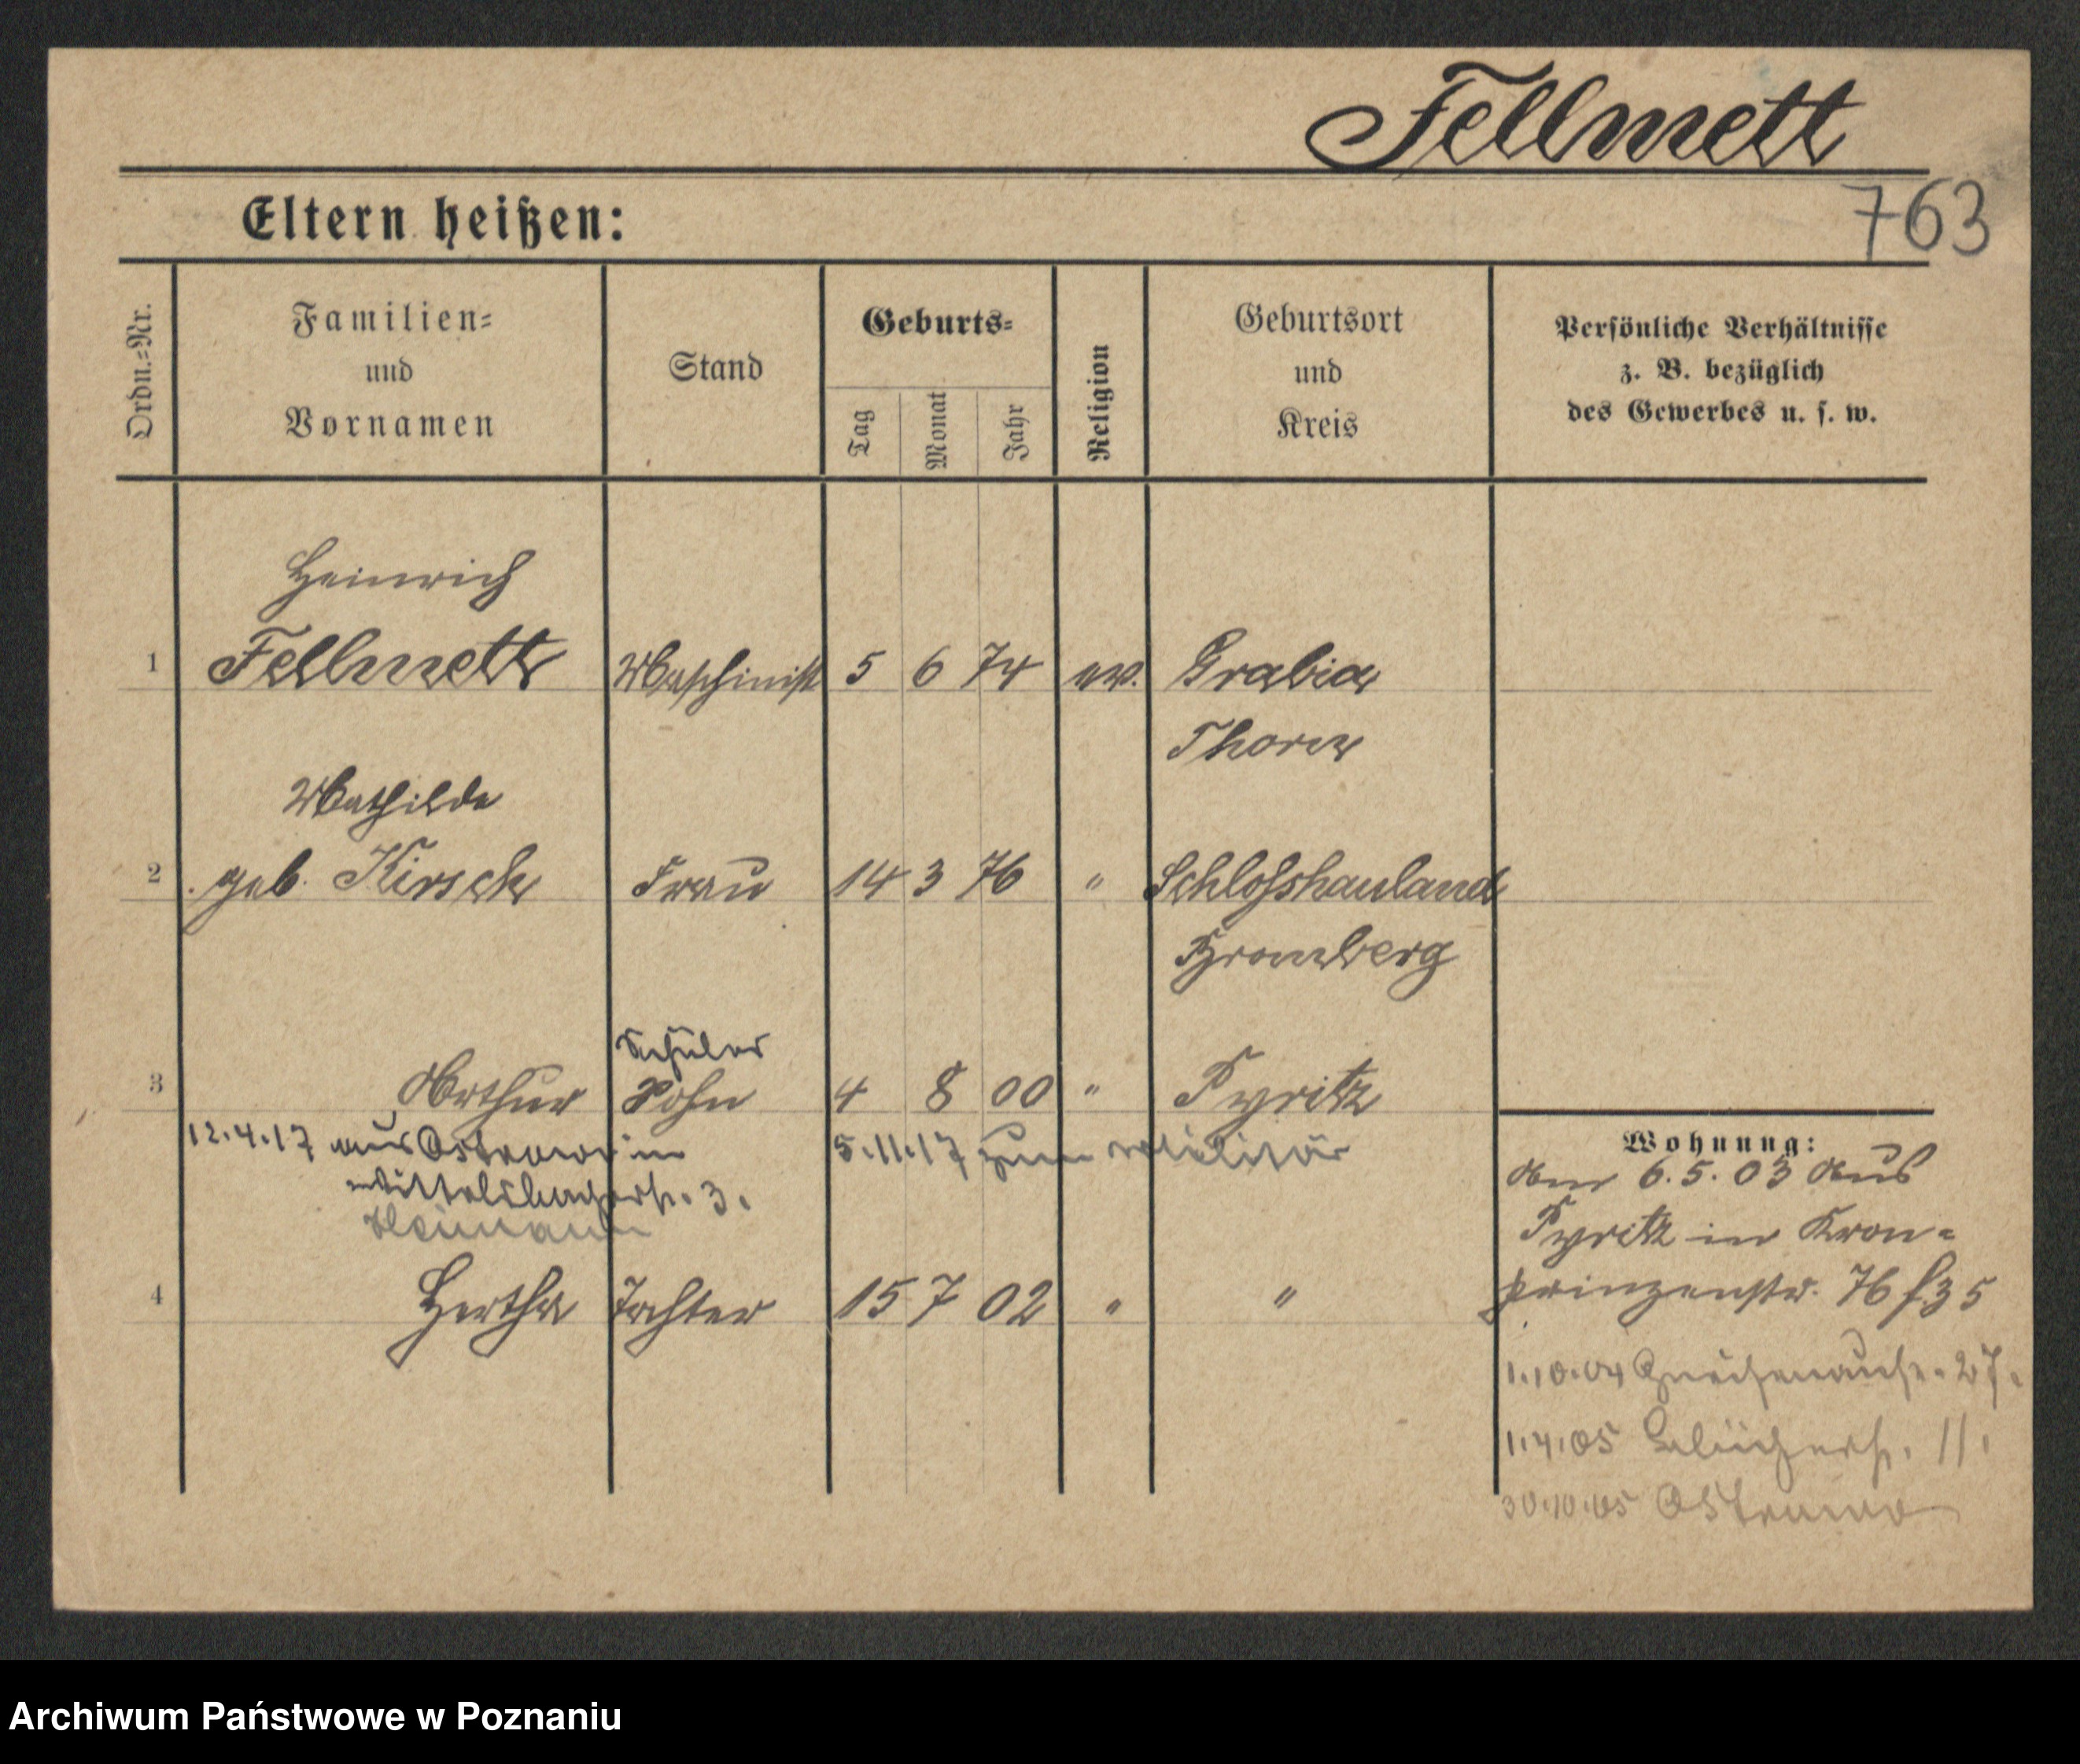 Fellmett
763
Eltern heißen:
Ordn.=Nr.
Familien=
und
Vornamen
Stand
Geburts=
Tag
Monat
Jahr
Religion
Geburtsort
und
Kreis
Persönliche Verhältnisse
z. B. bezüglich
des Gewerbes u. s. w.
Heinrich
1 Fellmett Maschinist 5 6 74 ev. Grabia
Thorn
Mathilde
2 geb. Kirsch Frau 14 3 76 " Schlosshauland
Bromberg
Schüler
3 Arthur Sohn 4 8 00 " Pyritz
12.4.17 aus Ostrowo in 5.11.17 zum Militär
Wittelsbacherstr. 3.
Heimann
4 Hertha Tochter 15 7 02 " "
Wohnung:
Am 6.5.03 aus
Pyritz in Kron=
prinzenstr. 76 f. 35
1.10.04 Gneisenaustr. 27.
1.4.05 Blücherstr. 11.
30.10.05 Ostrowo
Archiwum Państwowe w Poznaniu